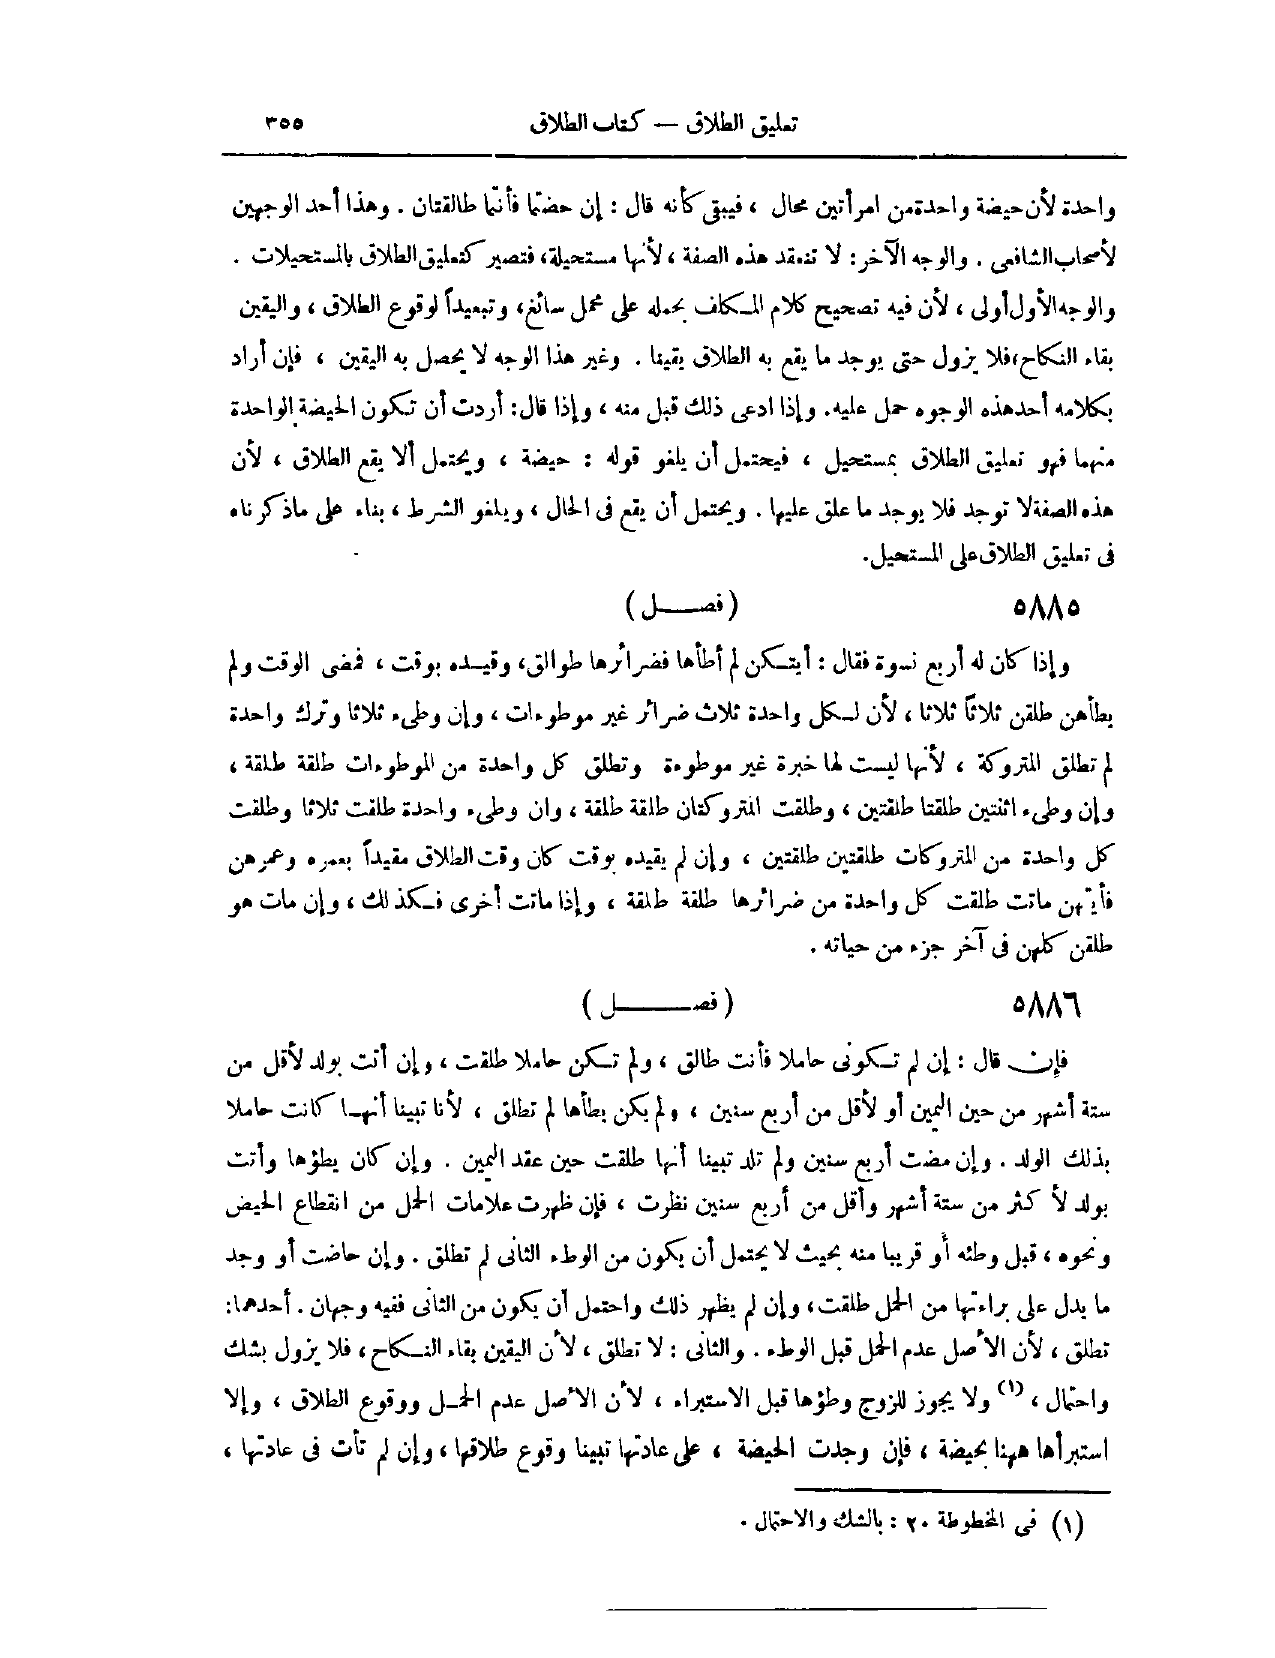 تعليق الطلاق — كتاب الطلاق ٣٥٥
واحدة لأن حيضة واحدة من امرأتين محال ، فيبقى كأنه قال : إن حضتما فأنتما طالقتان . وهذا أحد الوجهين
لأصحاب الشافعى . والوجه الآخر : لا تنعقد هذه الصفة ، لأنها مستحيلة ، فتصير كتعليق الطلاق بالمستحيلات .
والوجه الأول أولى ، لأن فيه تصحيح كلام المكلف بحمله على محمل سائغ ، وتبعيداً لوقوع الطلاق ، واليقين
بقاء النكاح ، فلا يزول حتى يوجد ما يقع به الطلاق يقينا . وغير هذا الوجه لا يحصل به اليقين ، فإن أراد
بكلامه أحد هذه الوجوه حمل عليه . وإذا ادعى ذلك قبل منه ، وإذا قال : أردت أن تكون الحيضة الواحدة
منهما فهو تعليق الطلاق بمستحيل ، فيحتمل أن يلغو قوله : حيضة ، ويحتمل ألا يقع الطلاق ، لأن
هذه الصفة لا توجد فلا يوجد ما علق عليها . ويحتمل أن يقع فى الحال ، ويلغو الشرط ، بناء على ماذكرناه
فى تعليق الطلاق على المستحيل .
٥٨٨٥ ( فصل )
وإذا كان له أربع نسوة فقال : أيتكن لم أطأها فضرائرها طوالق ، وقيده بوقت ، فمضى الوقت ولم
يطأهن طلقن ثلاثاً ثلاثا ، لأن لكل واحدة ثلاث ضرائر غير موطوءات ، وإن وطىء ثلاثا وترك واحدة
لم تطلق المتروكة ، لأنها ليست لها خبرة غير موطوءة وتطلق كل واحدة من الموطوءات طلقة طلقة ،
وإن وطىء اثنتين طلقتا طلقتين ، وطلقت المتروكتان طلقة طلقة ، وان وطىء واحدة طلقت ثلاثا وطلقت
كل واحدة من المتروكات طلقتين طلقتين ، وإن لم يقيده بوقت كان وقت الطلاق مقيداً بعمره وعمرهن
فأيتهن ماتت طلقت كل واحدة من ضرائرها طلقة طلقة ، وإذا ماتت أخرى فكذلك ، وإن مات هو
طلقن كلهن فى آخر جزء من حياته .
٥٨٨٦ ( فصل )
فإن قال : إن لم تكونى حاملا فأنت طالق ، ولم تكن حاملا طلقت ، وإن أتت بولد لأقل من
ستة أشهر من حين اليمين أو لأقل من أربع سنين ، ولم يكن يطأها لم تطلق ، لأنا تبينا أنها كانت حاملا
بذلك الولد . وإن مضت أربع سنين ولم تلد تبينا أنها طلقت حين عقد اليمين . وإن كان يطؤها وأتت
بولد لأكثر من ستة أشهر وأقل من أربع سنين نظرت ، فإن ظهرت علامات الحمل من انقطاع الحيض
ونحوه ، قبل وطئه أو قريبا منه بحيث لا يحتمل أن يكون من الوطء الثانى لم تطلق . وإن حاضت أو وجد
ما يدل على براءتها من الحمل طلقت ، وإن لم يظهر ذلك واحتمل أن يكون من الثانى ففيه وجهان . أحدهما :
تطلق ، لأن الأصل عدم الحمل قبل الوطء . والثانى : لا تطلق ، لأن اليقين بقاء النكاح ، فلا يزول بشك
واحتمال ، (١) ولا يجوز للزوج وطؤها قبل الاستبراء ، لأن الأصل عدم الحمل ووقوع الطلاق ، وإلا
استبرأها ههنا بحيضة ، فإن وجدت الحيضة ، على عادتها تبينا وقوع طلاقها ، وإن لم تأت فى عادتها ،
(١) فى المخطوطة ٢٠ : بالشك والاحتمال .